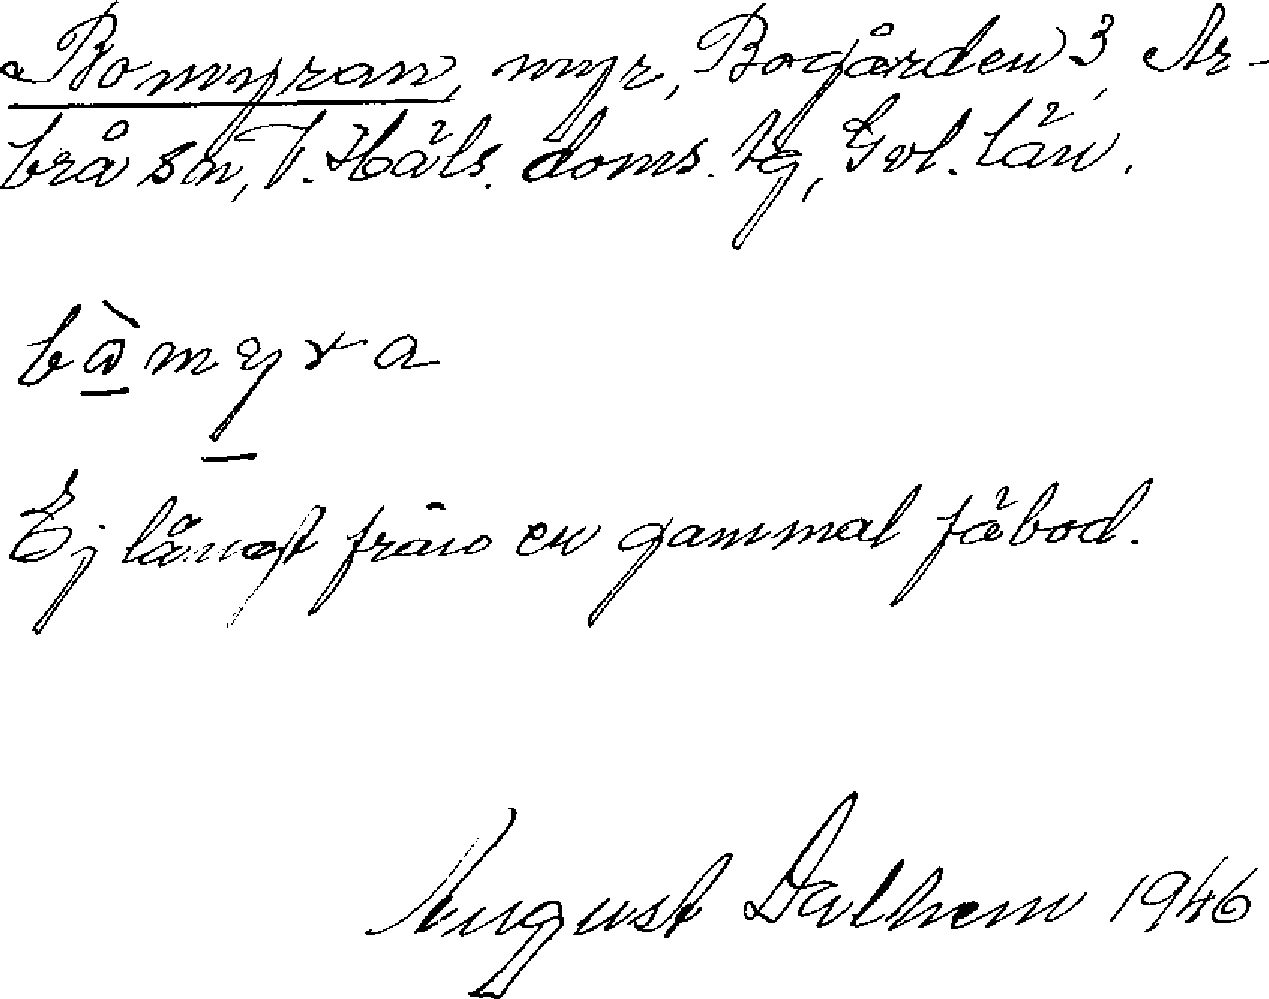 Bomyran, myr, Bogården 3, Ar-
brå sn, V. Häls. doms. tg, Gvl. län.
bàmyra
Ej långt från en gammal fäbod.
August Dalhem 1946